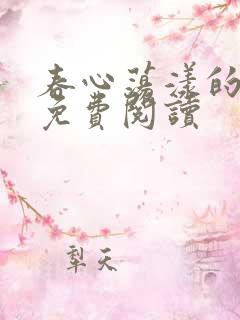 春心荡漾的
免費閱讀
犁天